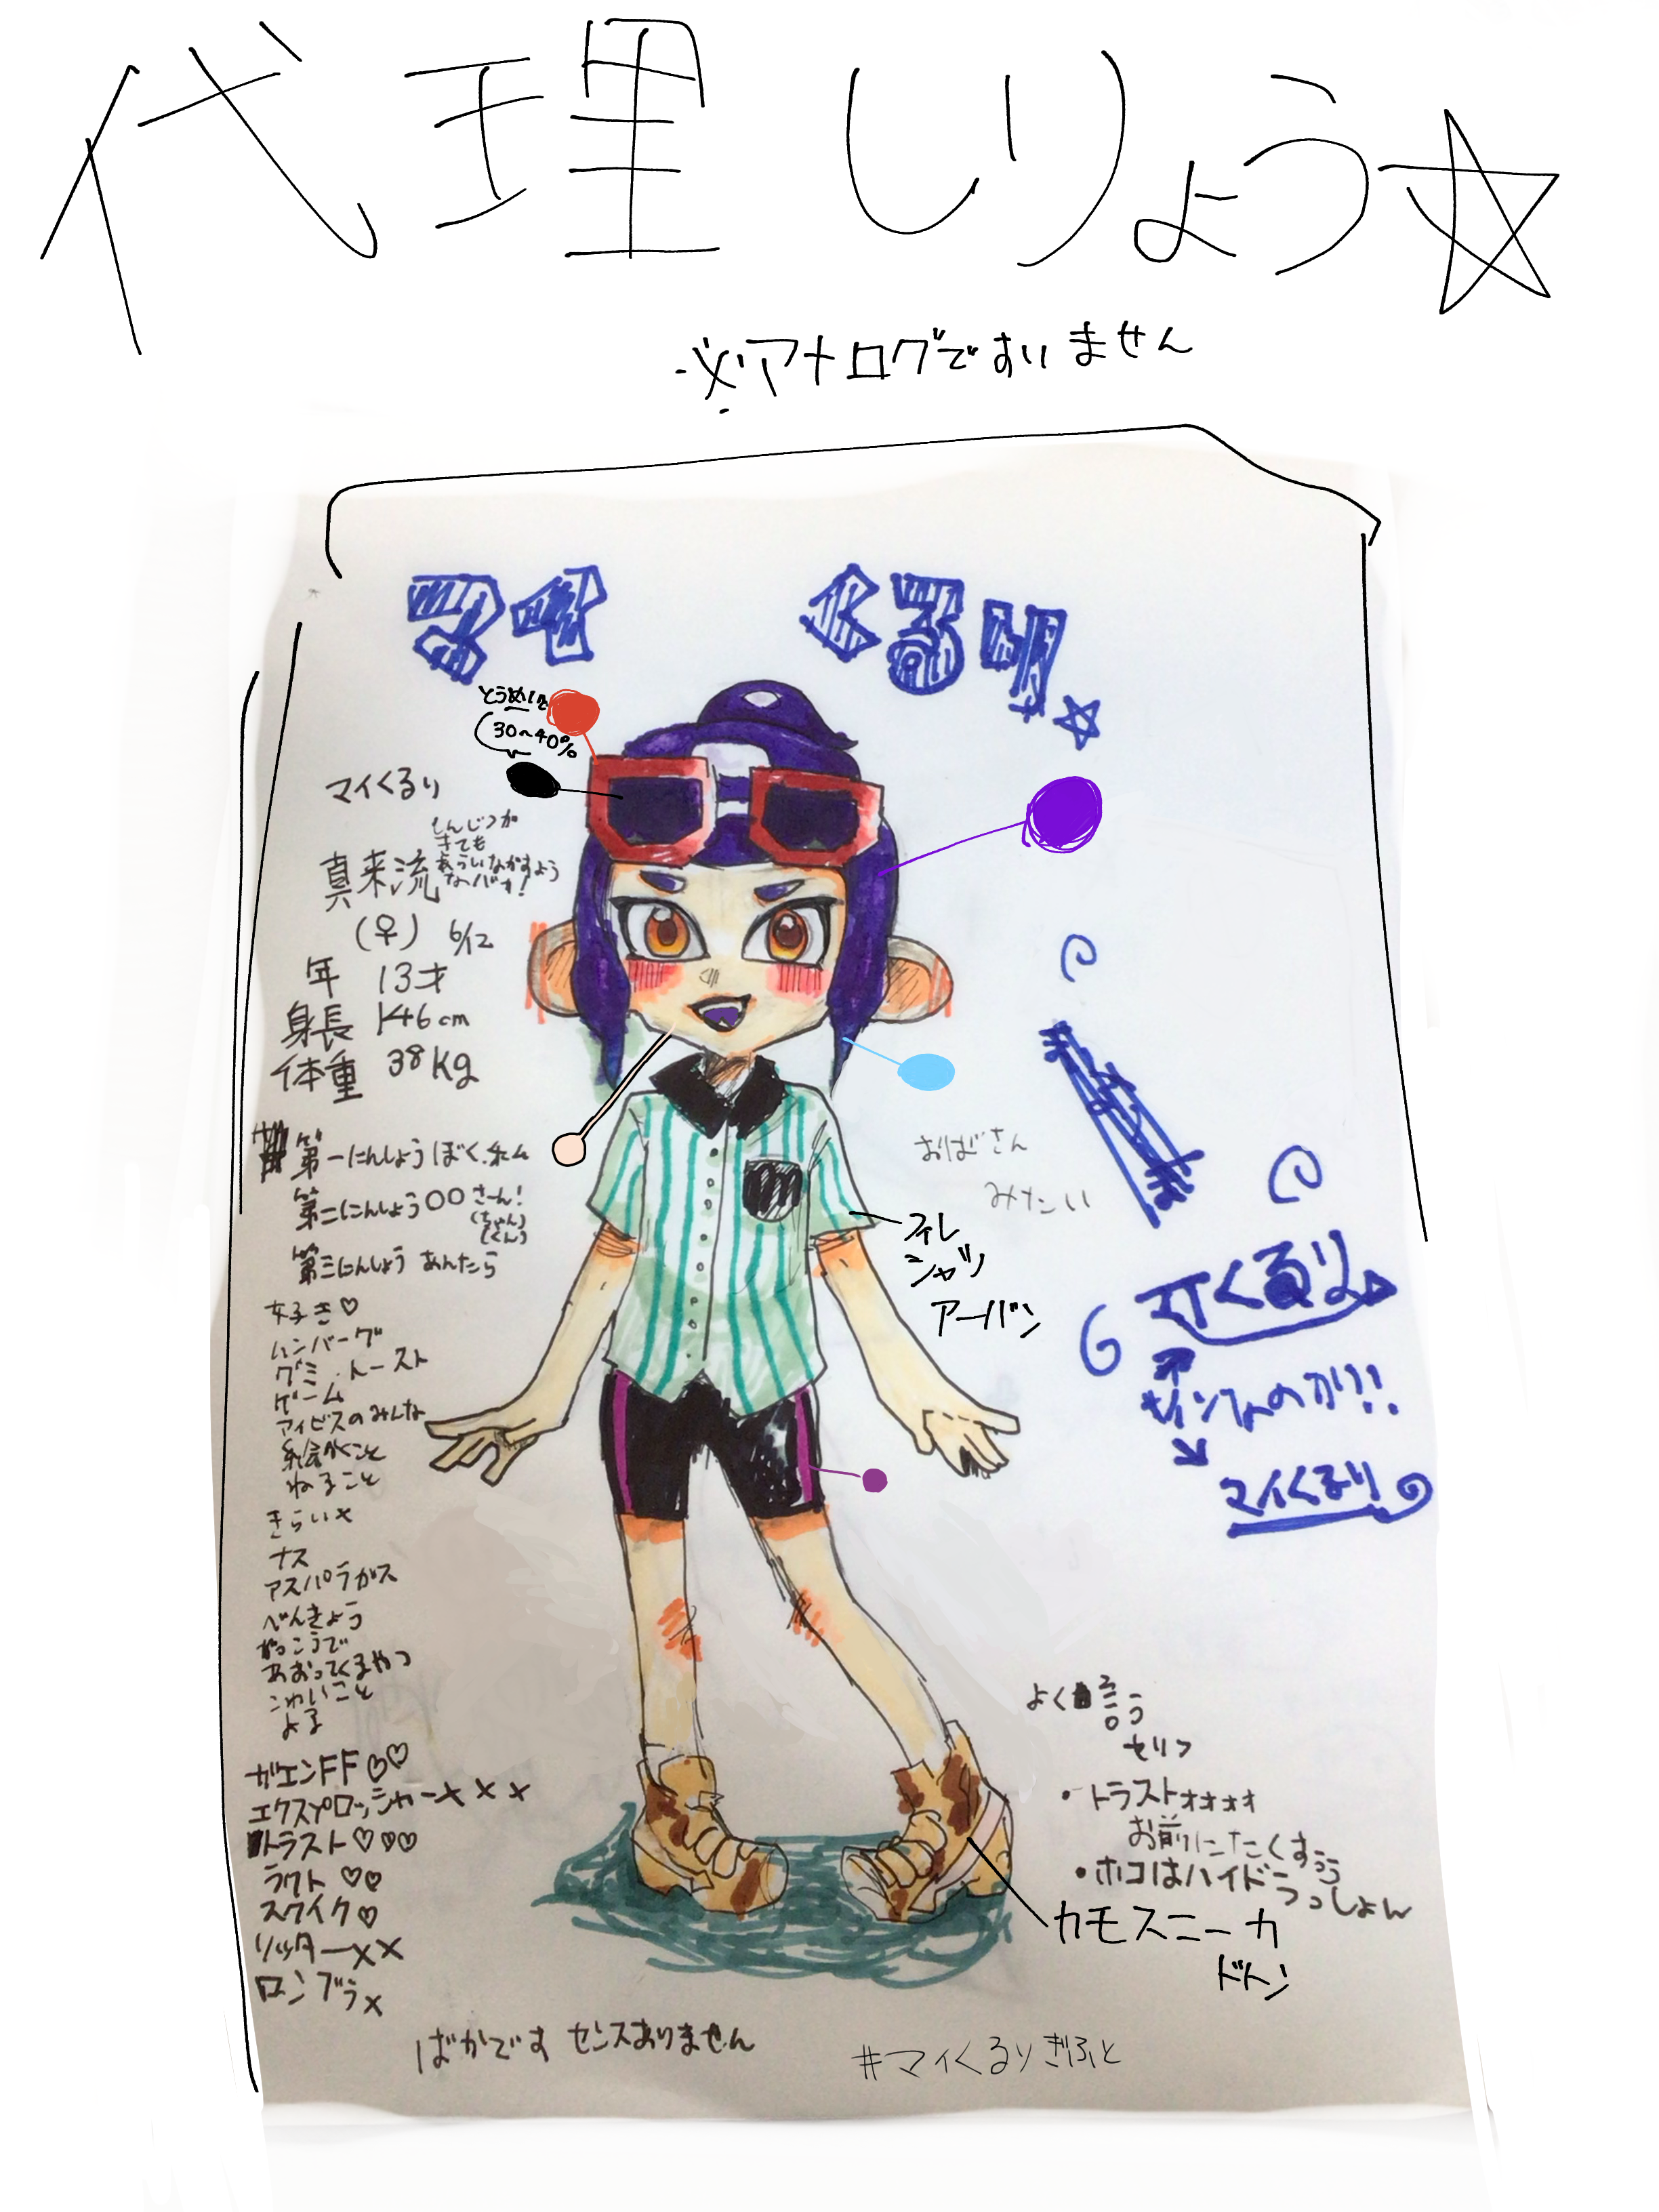 代理しりょう☆
※アナログですいません
マイ くるり☆
とうめいど
30〜40%
マイくるり
しんじつが
きても
あらいながすよう
なバカ!
真来流
(♀) 6/12
年 13才
身長 146cm
体重 38Kg
第一にんしょう ぼく、私
第二にんしょう ○○さーん!
(ちゃん)
(くん)
第三にんしょう あんたら
おばさん
みたい
フィレ
シャツ
アーバン
マイくるり
サインなのか!!
マイくるり
女子き♡
ハンバーグ
グミ、トースト
ゲーム
アイビスのみんな
絵かくこと
ねること
きらい×
ナス
アスパラガス
べんきょう
がっこうで
あおってくるやつ
こわいこと
よる
ガエンFF♡♡
エクスプロッシャー×××
トラスト♡♡♡
ラクト ♡♡
スクイク♡
リッター××
ロンブラ×
よく言う
セリフ
・トラストォォォォ
お前にたくすぅぅ
・ホコはハイドラっしょん
カモスニーカ
ドトン
ばかです センスありません
#マイくるりぎふと